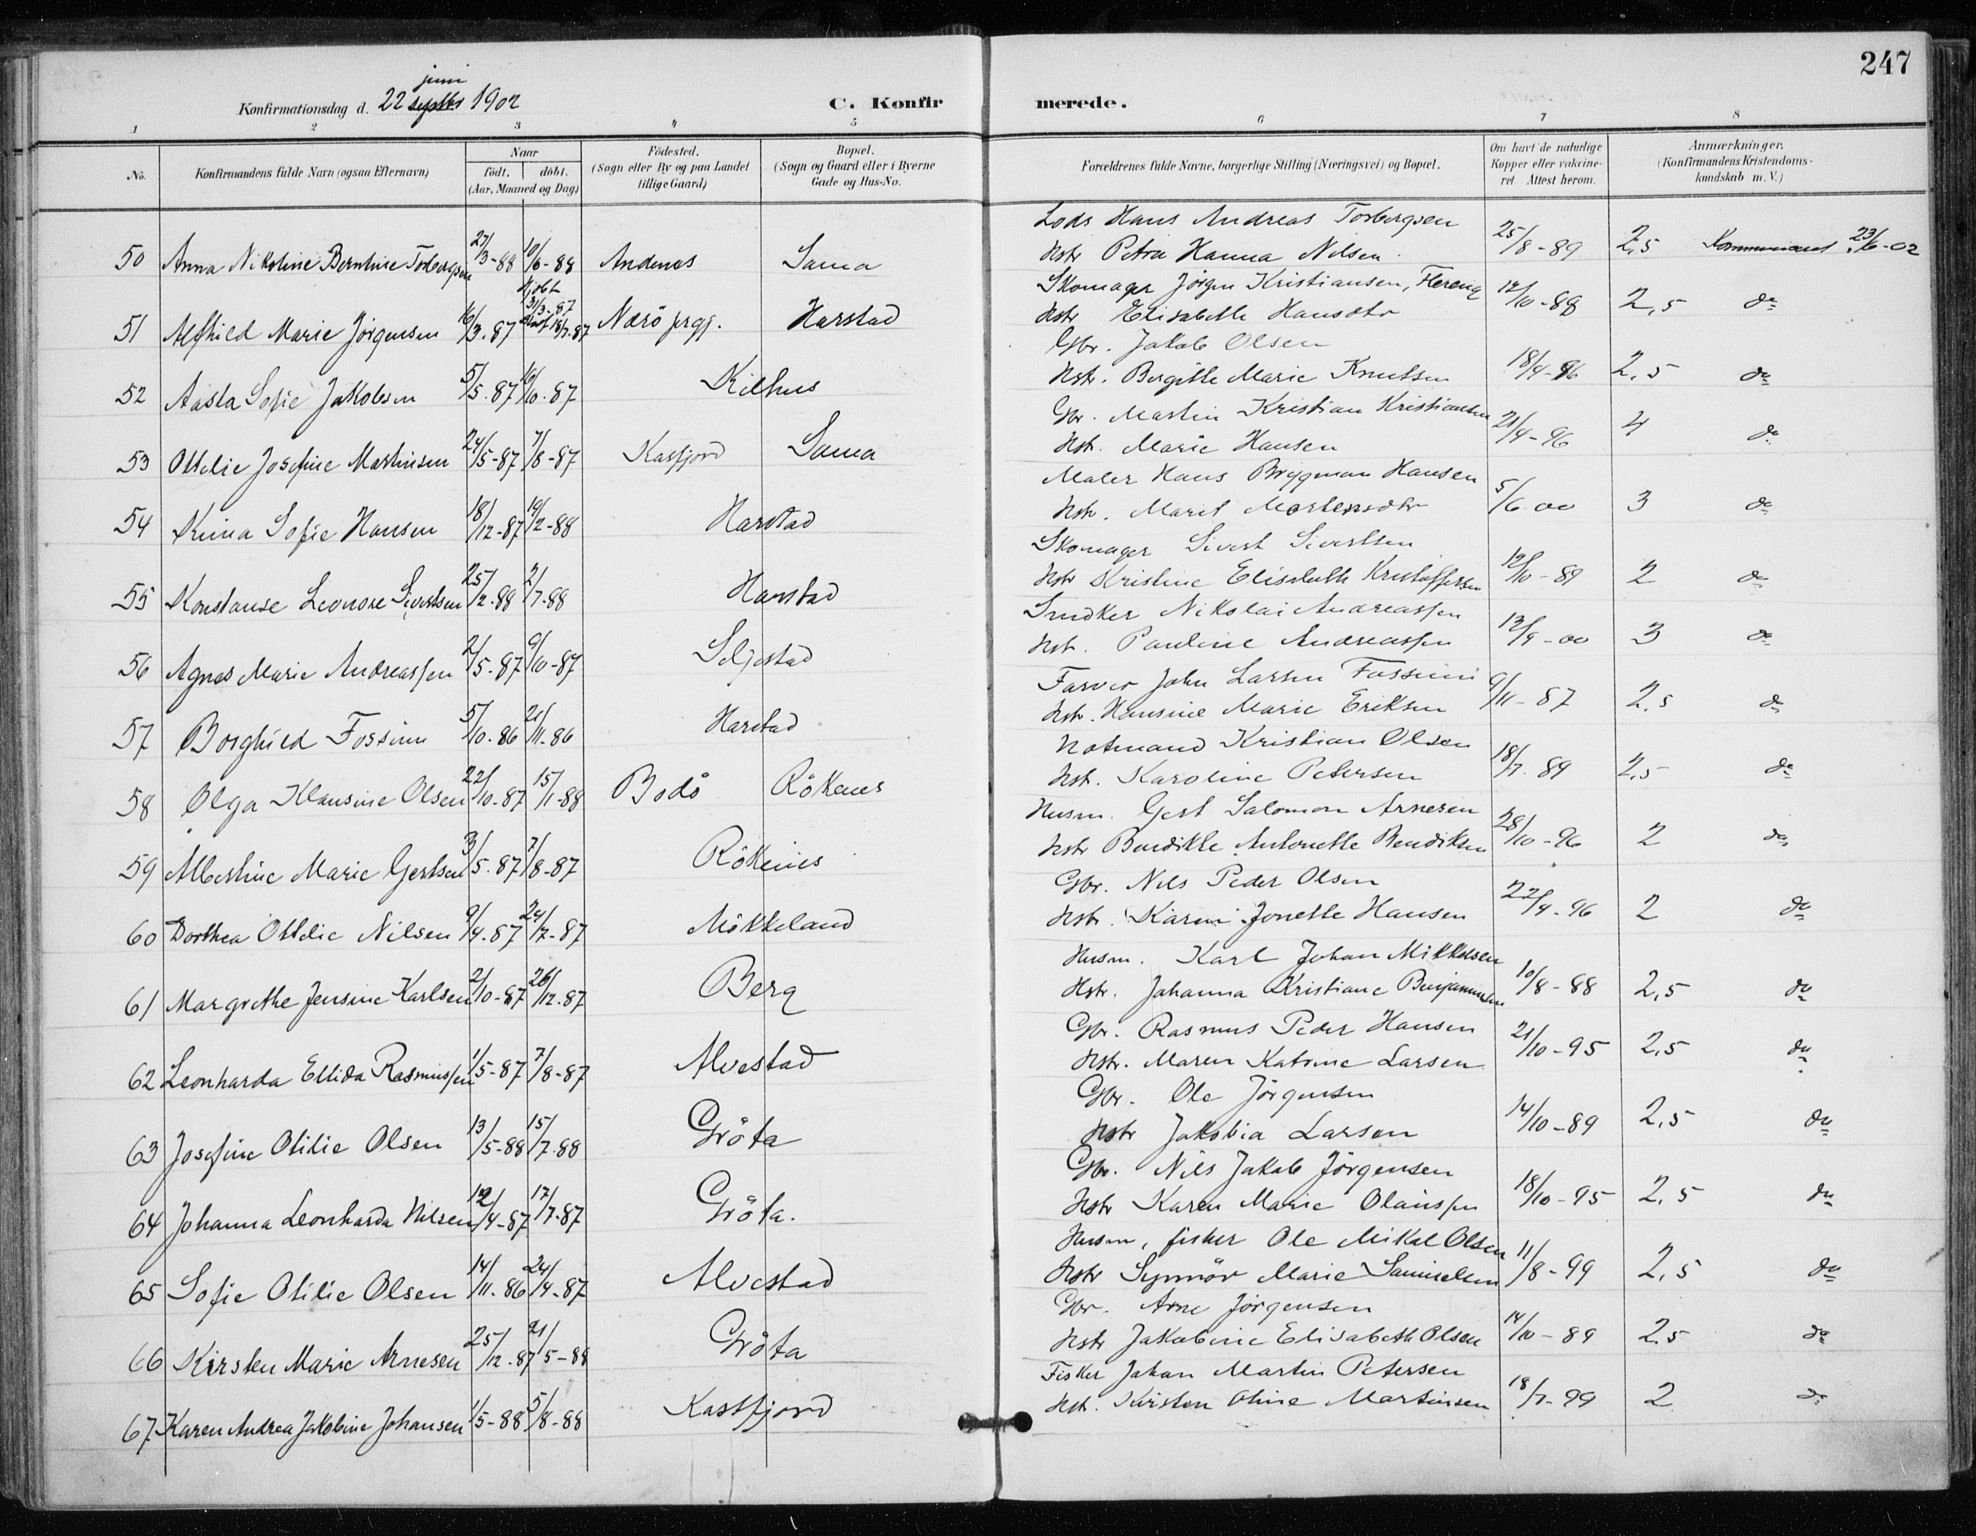 247
juni
Konfirmationsdag d. 22 septbr 1902
C. Konfirmerede.
1 2 3 4 5 6 7 8
No.
Konfirmandens fulde Navn (ogsaa Efternavn)
Naar
født. døbt.
(Aar, Maaned og Dag)
Fødested.
(Sogn eller By og paa Landet
tillige Gaard)
Bopæl.
(Sogn og Gaard eller i Byerne
Gade og Hus-No.
Forældrenes fulde Navne, borgerlige Stilling (Næringsvei) og Bopæl.
Om havt de naturlige
Kopper eller vaccine-
ret Attest herom.
Anmærkninger.
(Konfirmandens Kristendoms-
kundskab m. V.)
Lods Hans Andreas Torbergsen
50 Anna Nikoline Berntine Torbergsen 27/3-88 10/6-88 Andenes Sama Hstr Petra Hanna Nilsen 25/8-89 2,5 Kommuniceret 23/6-02
Skomager Jörgen Kristiansen,
51 Alfhild Marie Jörgensen 16/3.87 hjdbt 31/3-87 18/7.87 Nærö prgj. Harstad Hstr Elisabeth Hansdtr 12/10-88 2,5 do
Gbr. Jakob Olsen
52 Aasta Sofie Jakobsen 5/5.87 16/10-87 Kilhus Hstr. Bergitte Marie Knutsen 18/4-96 2,5 do
Gbr. Martin Kristian Kristiansen
53 Ottelie Josefine Martinsen 24/5-87 7/8-87 Kasfjord Sama Hst. Marie Hansen 21/4-96 4 do
Maler Hans Brygman Hansen
54 Sofie Hansen 18/12-87 19/2-88 Harstad Hstr. Maret Mortensdtr 5/6.00 3 do
Skomager Sivert Sivertsen
55 Konstanse Leonore Sivertsen 25/2.88 2/7.88 Harstad Hstr Kristine Elisabeth Kristoffersen 12/10-89 2 do
Snedker Nikolai Andreassen
56 Agnes Marie Andreassen 2/5.87 9/10-87 Seljestad Hst. Pauline Andreassen 12/9-00 3 do
Farver John Larsen Fossum
57 Borghild Fossum 5/10-86 21/11-86 Harstad Hstr. Hansine Marie Eriksen 9/11-87 2,5 do
Notmand Kristian Olsen
58 Olga Klausine Olsen 22/10-87 15/1-88 Bodö Rökenes Hst. Karoline Petersen 18/7.89 2,5 do
Husm. Gert Salomon Arnesen
59 Albertine Marie Gertsen 3/5.87 7/8-87 Rökenes Hstr Bendikte Antonette Bendiksen 28/10-96 2 do
Gbr. Nils Peder Olsen
60 Dorthea Ottelie Nilsen 9/4.87 24/7-87 Mökkeland Hstr. Karen Jonette Hansen 22/4-96 2 do
Husm. Karl Johan Mikkelsen
61 Margrethe Jensine Karlsen 2/10-87 26/12.87 Berg Hstr. Johanna Kristiane Benjaminsen 10/8-88 2,5 do
Gbr. Rasmus Peder Hansen
62 Leonharda Ellida Rasmussen 1/5-87 7/8-87 Alvestad Hstr. Maren Katrine Larsen 21/10-95 2,5 do
Gbr. Ole Jörgensen
63 Josefine Otilie Olsen 13/5-88 15/7.88 Gröta Hstr Jakobia Larsen 14/10-89 2,5 do
Gbr. Nils Jakob Jörgensen
64 Johanna Leonharda Nilsen 12/4-87 17/7-87 Gröta. Hstr Karen Marie Olaussen 18/10-95 2,5 do
Husm, fisker Ole Mikal Olsen
65 Sofie Otilie Olsen 14/11-86 24/4-87 Alvestad Hstr Synnöv Marie Samuelsen 11/8-99 2,5 do
Gbr. Arne Jörgensen
66 Kirsten Marie Arnesen 25/12.87 21/5-88 Gröta Hstr Jakobine Elisabeth Olsen 14/10-89 2,5 do
Fisker Johan Martin Petersen
67 Karen Andrea Jakobine Johansen 1/5-88 5/8-88 Kasfjord Hst. Kirsten Oline Martinsen 18/7-99 2 do